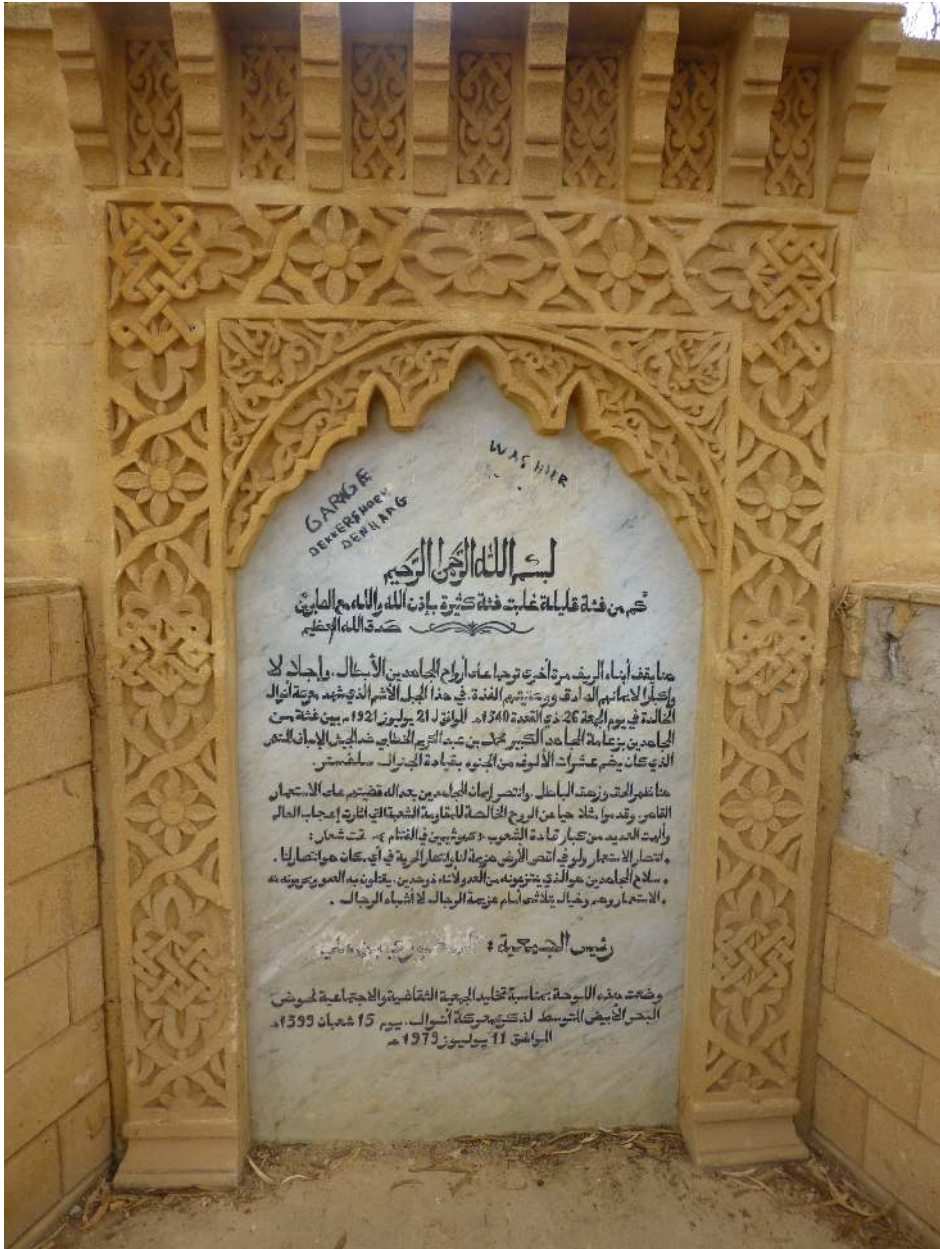 GARAGE
DEKKERSHOEK
DEN HAAG
WAS HIER
بسم الله الرحمن الرحيم
كم من فئة قليلة غلبت فئة كثيرة بإذن الله والله مع الصابرين
صدق الله العظيم
هنا يقف أبناء الريف مرة أخرى ترحما على أرواح المجاهدين الأبطال. وإجلالا
وإكبارا لإيمانهم الصادق ووطنيتهم الفذة. في هذا الجبل الأشم الذي شهد معركة أنوال
الخالدة في يوم الجمعة 26 ذي القعدة 1340هـ الموافق لـ 21 يوليوز 1921م بين فئة من
المجاهدين بزعامة المجاهد الكبير محمد بن عبد الكريم الخطابي ضد الجيش الإسباني
الذي كان يضم عشرات الألوف من الجنود بقيادة الجنرال سلفستر.
هنا ظهر الحق وزهق الباطل. وانتصر إيمان المجاهدين بعدالة قضيتهم على الاستعمار
الغاصب. وقدموا مثلا حيا عن الروح الخالصة للمقاومة الشعبية التي أثارت إعجاب العالم
وألهمت العديد من كبار قادة الشعوب «كهوشيمين في الفتنام» تحت شعار:
. انتصار الاستعمار ولو في أقصى الأرض هزيمة لنا وانتصار الحرية في أي مكان هو انتصار لنا.
. سلاح المجاهدين هو الذي ينتزعونه من العدو لأنه ذو حدين. يقتلون به العدو ويحرمونه منه
. الاستعمار وهم وخيال يتلاشى أمام عزيمة الرجال لا أشباه الرجال.
رئيس الجمعية:
وضعت هذه اللوحة بمناسبة تخليد الجمعية الثقافية والاجتماعية لحوض
البحر الأبيض المتوسط لذكرى معركة أنوال. يوم 15 شعبان 1399هـ
الموافق 11 يوليوز 1979م